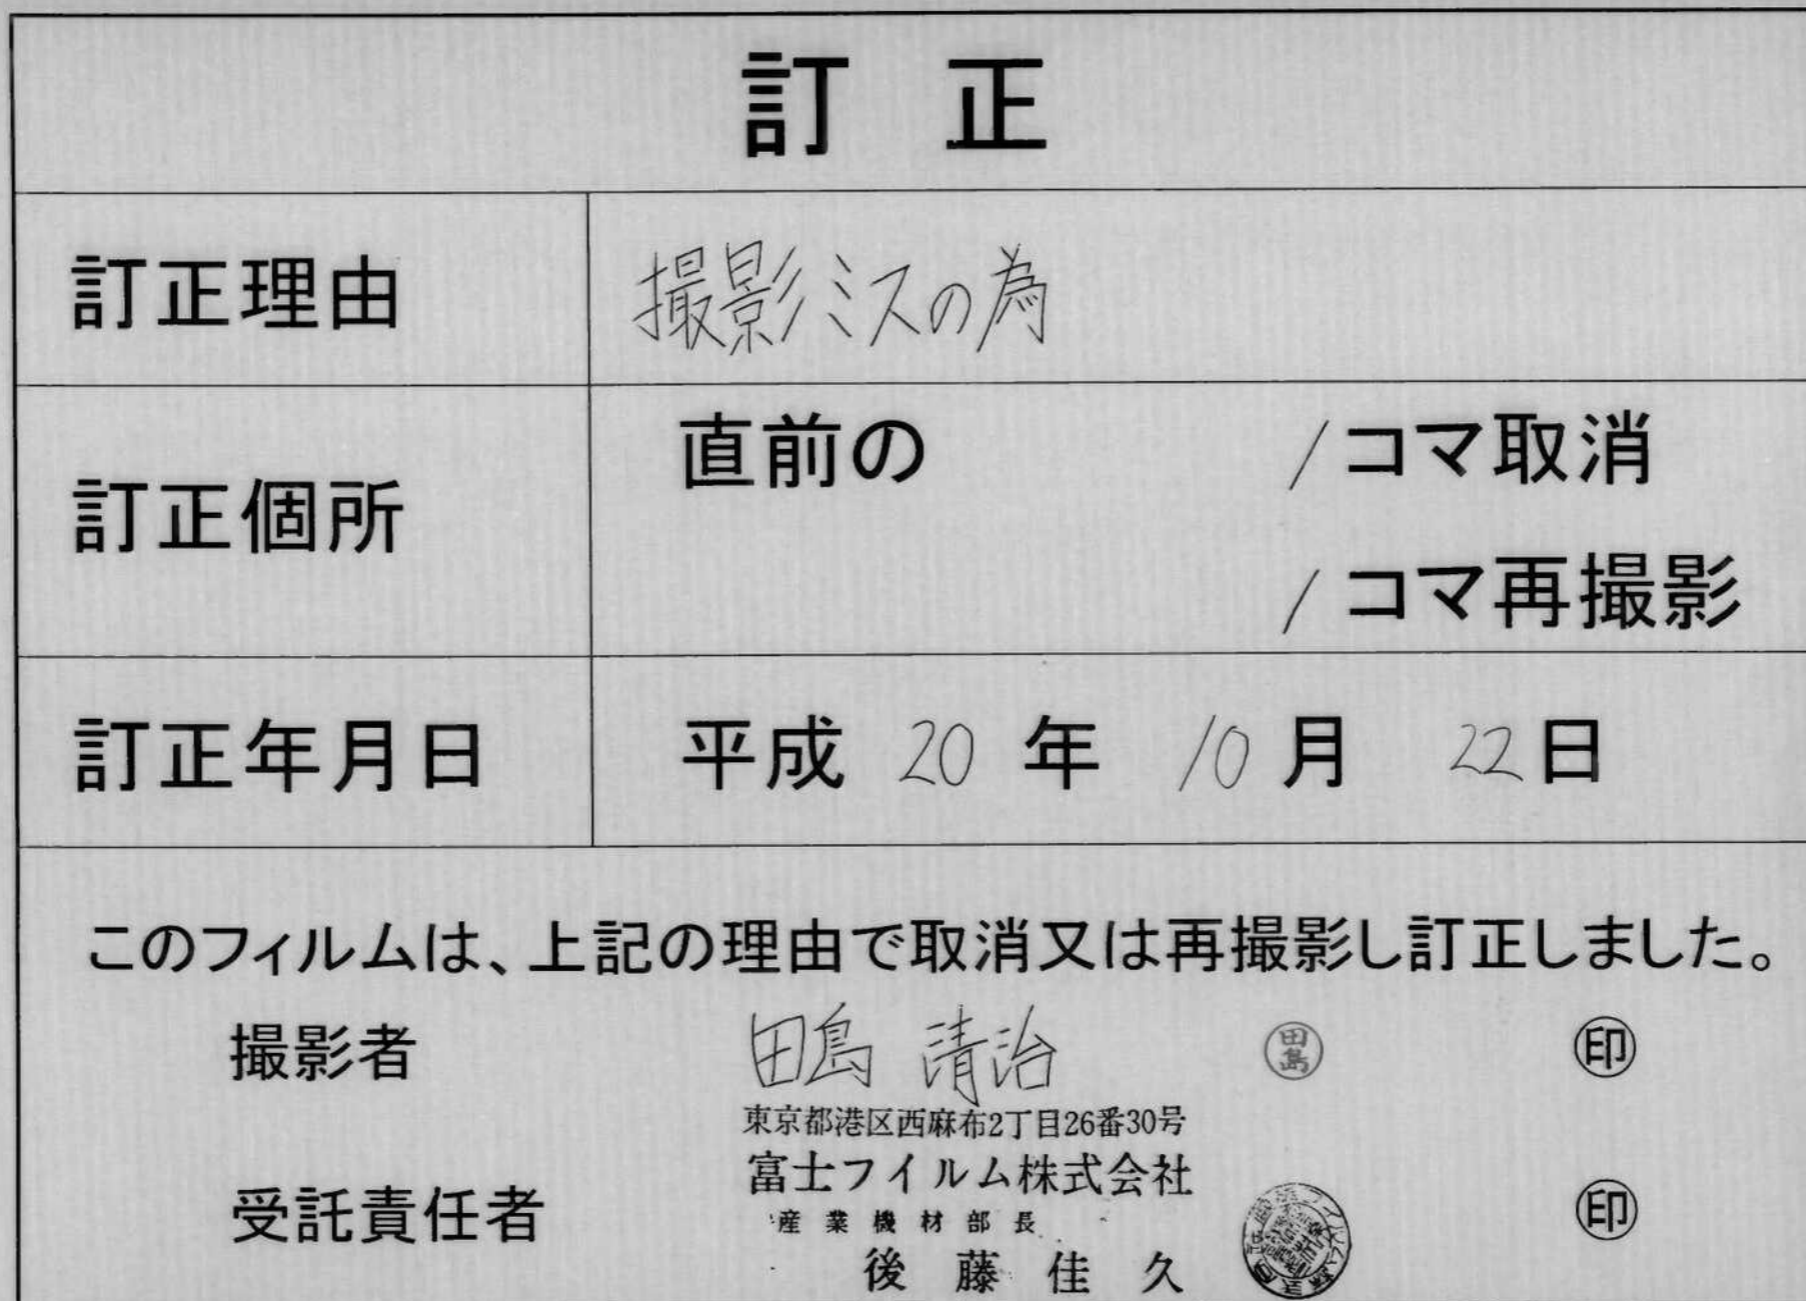 訂正
訂正理由
撮影ミスの為
訂正個所
直前の 1コマ取消
1コマ再撮影
訂正年月日
平成 20 年 10 月 22 日
このフィルムは、上記の理由で取消又は再撮影し訂正しました。
撮影者 田島 清治 田島 ㊞
東京都港区西麻布2丁目26番30号
富士フイルム株式会社
受託責任者 ㊞
産業機材部長
後藤佳久